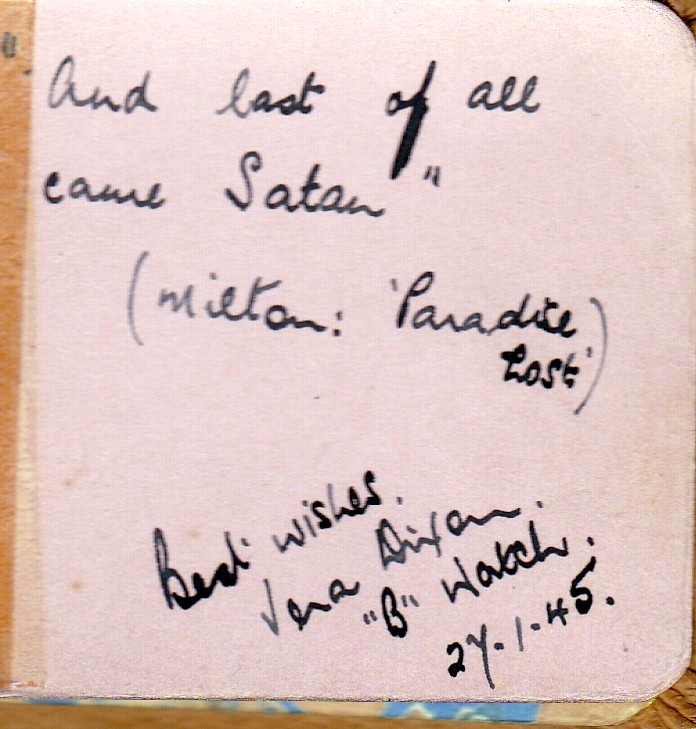 And last of all
came Satan"
(Milton: 'Paradise
Lost')
Best wishes.
Vera Dixon.
"B" Watch.
27.1.45.